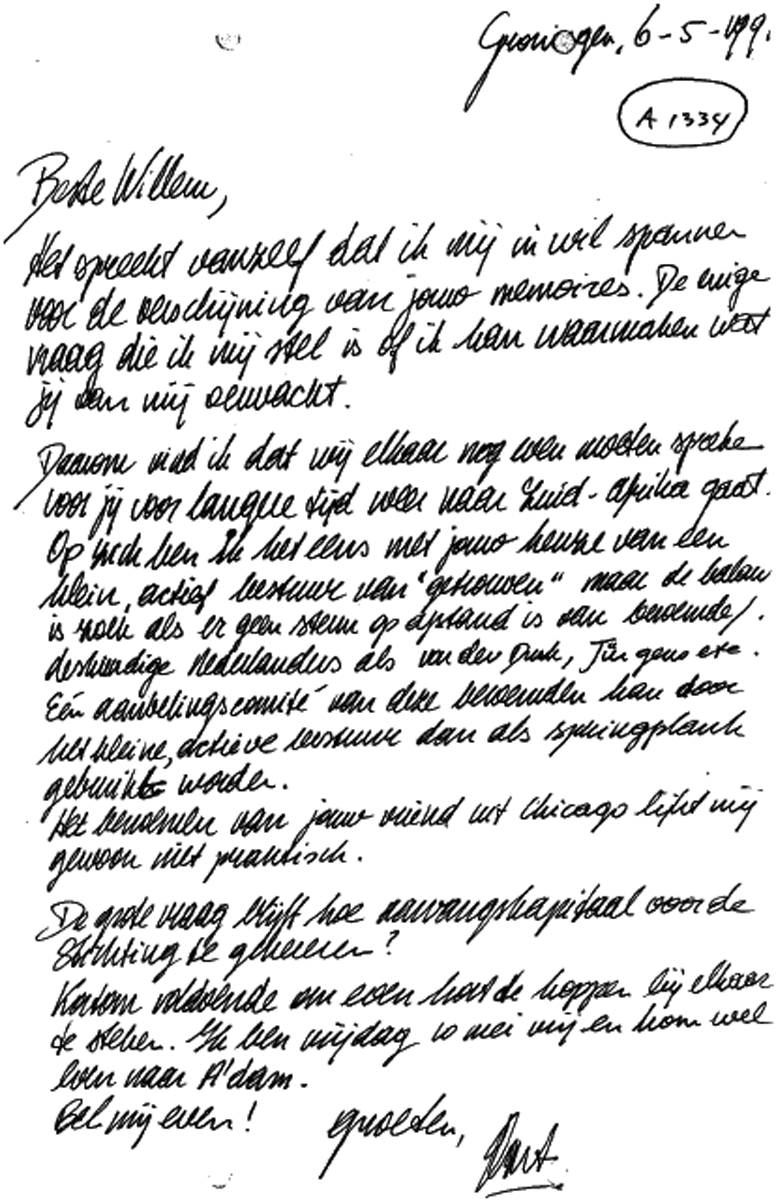 Groningen, 6-5-199.
A 1334
Beste Willem,
Het spreekt vanzelf dat ik mij in wil spannen
voor de verschijning van jouw memoires. De enige
vraag die ik mij stel is of ik kan waarmaken wat
jij van mij verwacht.
Daarom vind ik dat wij elkaar nog even moeten spreken
voor jij voor langere tijd weer naar Zuid-Afrika gaat.
Op zich ben ik het eens met jouw keuze van een
klein, actief bestuur van "getrouwen" maar de balans
is zoek als er geen steun op afstand is van beroemde/
deskundige Nederlanders als van den Doel, Jürgens etc.
Eén aanbelingscomité van deze beroemden kan door
het kleine, actieve bestuur dan als springplank
gebruikt worden.
Het benoemen van jouw vriend uit Chicago lijkt mij
gewoon niet praktisch.
De grote vraag blijft hoe aanvangskapitaal voor de
Stichting te genereren?
Kortom voldoende om even hard de koppen bij elkaar
te steken. Ik ben vrijdag 10 mei vrij en kom wel
even naar A'dam.
Bel mij even! groeten,